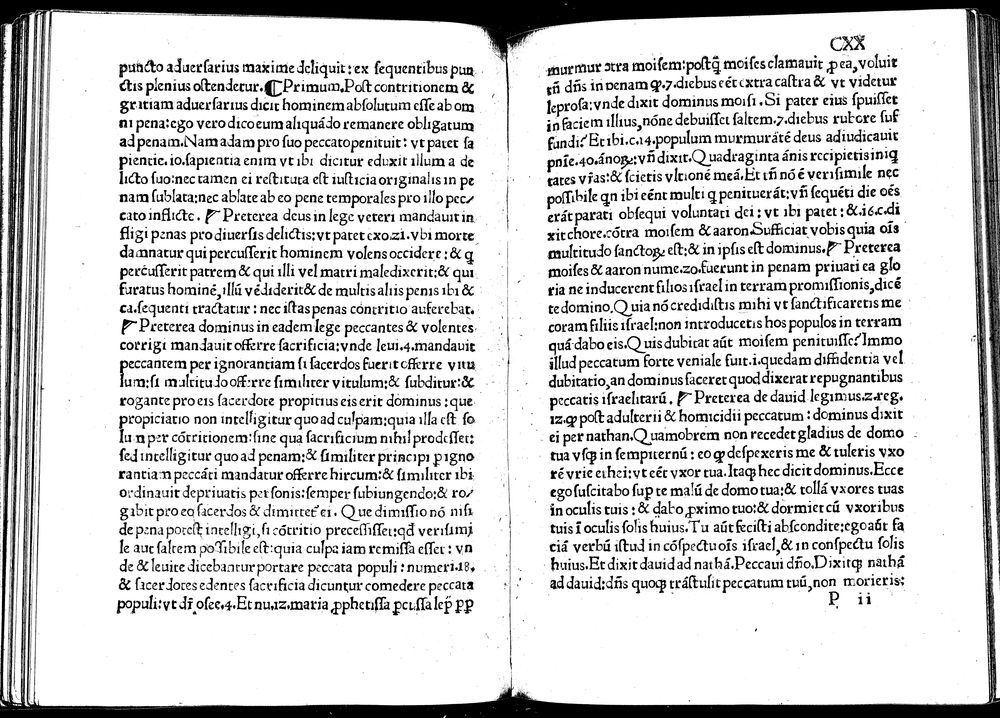 puncto aduersarius maxime deliquit: ex sequentibus pun
ctis plenius ostendetur. ¶ Primum. Post contritionem &
gr̄tiam aduersarius dicit hominem absolutum esse ab om
ni pena: ego vero dico eum aliquãdo remanere obligatum
ad penam. Nam adam pro suo peccato penituit: vt patet sa
pientie. io. sapientia enim vt ibi dicitur eduxit illum a de
licto suo: nec tamen ei restituta est iusticia originalis in pe
nam sublata: nec ablate ab eo pene temporales pro illo pec⸗
cato inflicte. ¶ Preterea deus in lege veteri mandauit in
fligi penas pro diuersis delictis: vt patet exo. 21. vbi morte
damnatur qui percusserit hominem volens occidere: & q
percusserit patrem & qui illi vel matri maledixerit: & qui
furatus hominē, illũ vēdiderit & de multis aliis penis ibi &
ca. sequenti tractatur: nec istas penas contritio auferebat.
¶ Preterea dominus in eadem lege peccantes & volentes
corrigi mandauit offerre sacrificia: vnde leui. 4. mandauit
peccantem per ignorantiam si sacerdos fuerit offerre vitu
lum: si multitudo offerre similiter vitulum: & subditur: &
rogante pro eis sacerdote propitius eis erit dominus: que
propiciatio non intelligitur quo ad culpam: quia illa est so
lum per cõtritionem: sine qua sacrificium nihil prodesset:
sed intelligitur quo ad penam: & similiter principi p igno
rantiam peccãti mandatur offerre hircum: & similiter ibi
ordinauit de priuatis personis: semper subiungendo: & ro⸗
gabit pro eo sacerdos & dimittet̃ ei. Que dimissio nõ nisi
de pena potest intelligi, si cõtritio precessisset: qd̃ verisimi
le aut saltem possibile est: quia culpa iam remissa esset: vn
de & leuite dicebantur portare peccata populi: numeri. 18.
& sacerdotes edentes sacrificia dicuntur comedere peccata
populi: vt dr̃ osee. 4. Et nu. 12. maria ꝓphetissa ꝑcussa lep̃ ꝓp
CXX
murmur ꝯtra moisem: postq̃ moises clamauit ꝓ ea, voluit
tñ dñs in penam ꝙ. 7. diebus eēt extra castra & vt videtur
leprosa: vnde dixit dominus moisi. Si pater eius spuisset
in faciem illius, nõne debuisset saltem. 7. diebus rubore suf
fundi? Et ibi. c. 14. populum murmurãtē deus adiudicauit
pnīe. 40. ãnoꝝ: vñ dixit. Quadraginta ãnis recipietis iniq
tates vr̃as: & scietis vltionē meã. Et tñ nõ ē verisimile nec
possibile qn ibi eēnt multi q penituerãt: vñ sequēti die oēs
erãt parati obsequi voluntati dei: vt ibi patet: & .16. c. di
xit chore. cõtra moisem & aaron. Sufficiat vobis quia oīs
multitudo sanctoꝝ est: & in ipsis est dominus. ¶ Preterea
moises & aaron nume. 20. fuerunt in penam priuati ea glo
ria ne inducerent filios israel in terram promissionis, dicē
te domino. Quia nõ credidistis mihi vt sanctificaretis me
coram filiis israel: non introducetis hos populos in terram
quã dabo eis. Quis dubitat aũt moisem penituisse? Immo
illud peccatum forte veniale fuit. i. quedam diffidentia vel
dubitatio, an dominus faceret quod dixerat repugnantibus
peccatis israelitarũ. ¶ Preterea de dauid legimus. 2. reg.
12. ꝙ post adulterii & homicidii peccatum: dominus dixit
ei per nathan. Quamobrem non recedet gladius de domo
tua vsq̃ in sempiternũ: eo ꝙ despexeris me & tuleris vxo
rē vrie ethei: vt eēt vxor tua. Itaq̃ hec dicit dominus. Ecce
ego suscitabo sup te malũ de domo tua: & tollã vxores tuas
in oculis tuis: & dabo ꝓximo tuo: & dormiet cũ vxoribus
tuis ī oculis solis huius. Tu aũt fecisti abscondite: ego aũt fa
ciã verbũ istud in cõspectu oīs israel, & in conspectu solis
huius. Et dixit dauid ad nathã. Peccaui dño. Dixitq̃ nathã
ad dauid: dñs quoq̃ trãstulit peccatum tuũ, non morieris:
P ii